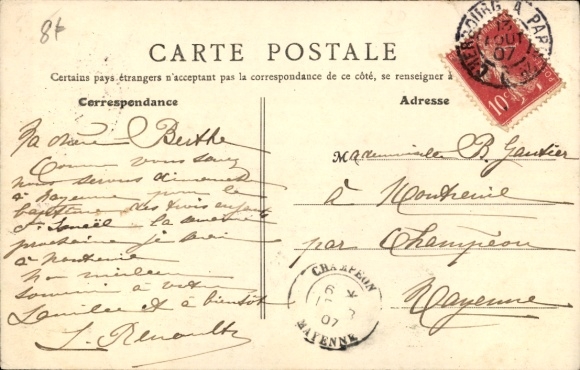 8f
CARTE POSTALE
Certains pays étrangers n'acceptant pas la correspondance de ce côté, se renseigner à
Correspondance
Adresse
CHERBOURG A PARIS
13
AOUT
07
10c
Ma chère Berthe
Comme vous savez
nous serons dimanche
à Mayenne pour le
baptême des trois enfants
St Ismaël la semaine
prochaine je serai
à Montreuil
Nos meilleurs
souvenirs à votre
famille et à bientôt
L. Renault
Mademoiselle B. Gautier
à Montreuil
par Champéon
Mayenne
CHAMPEON
6
07
MAYENNE